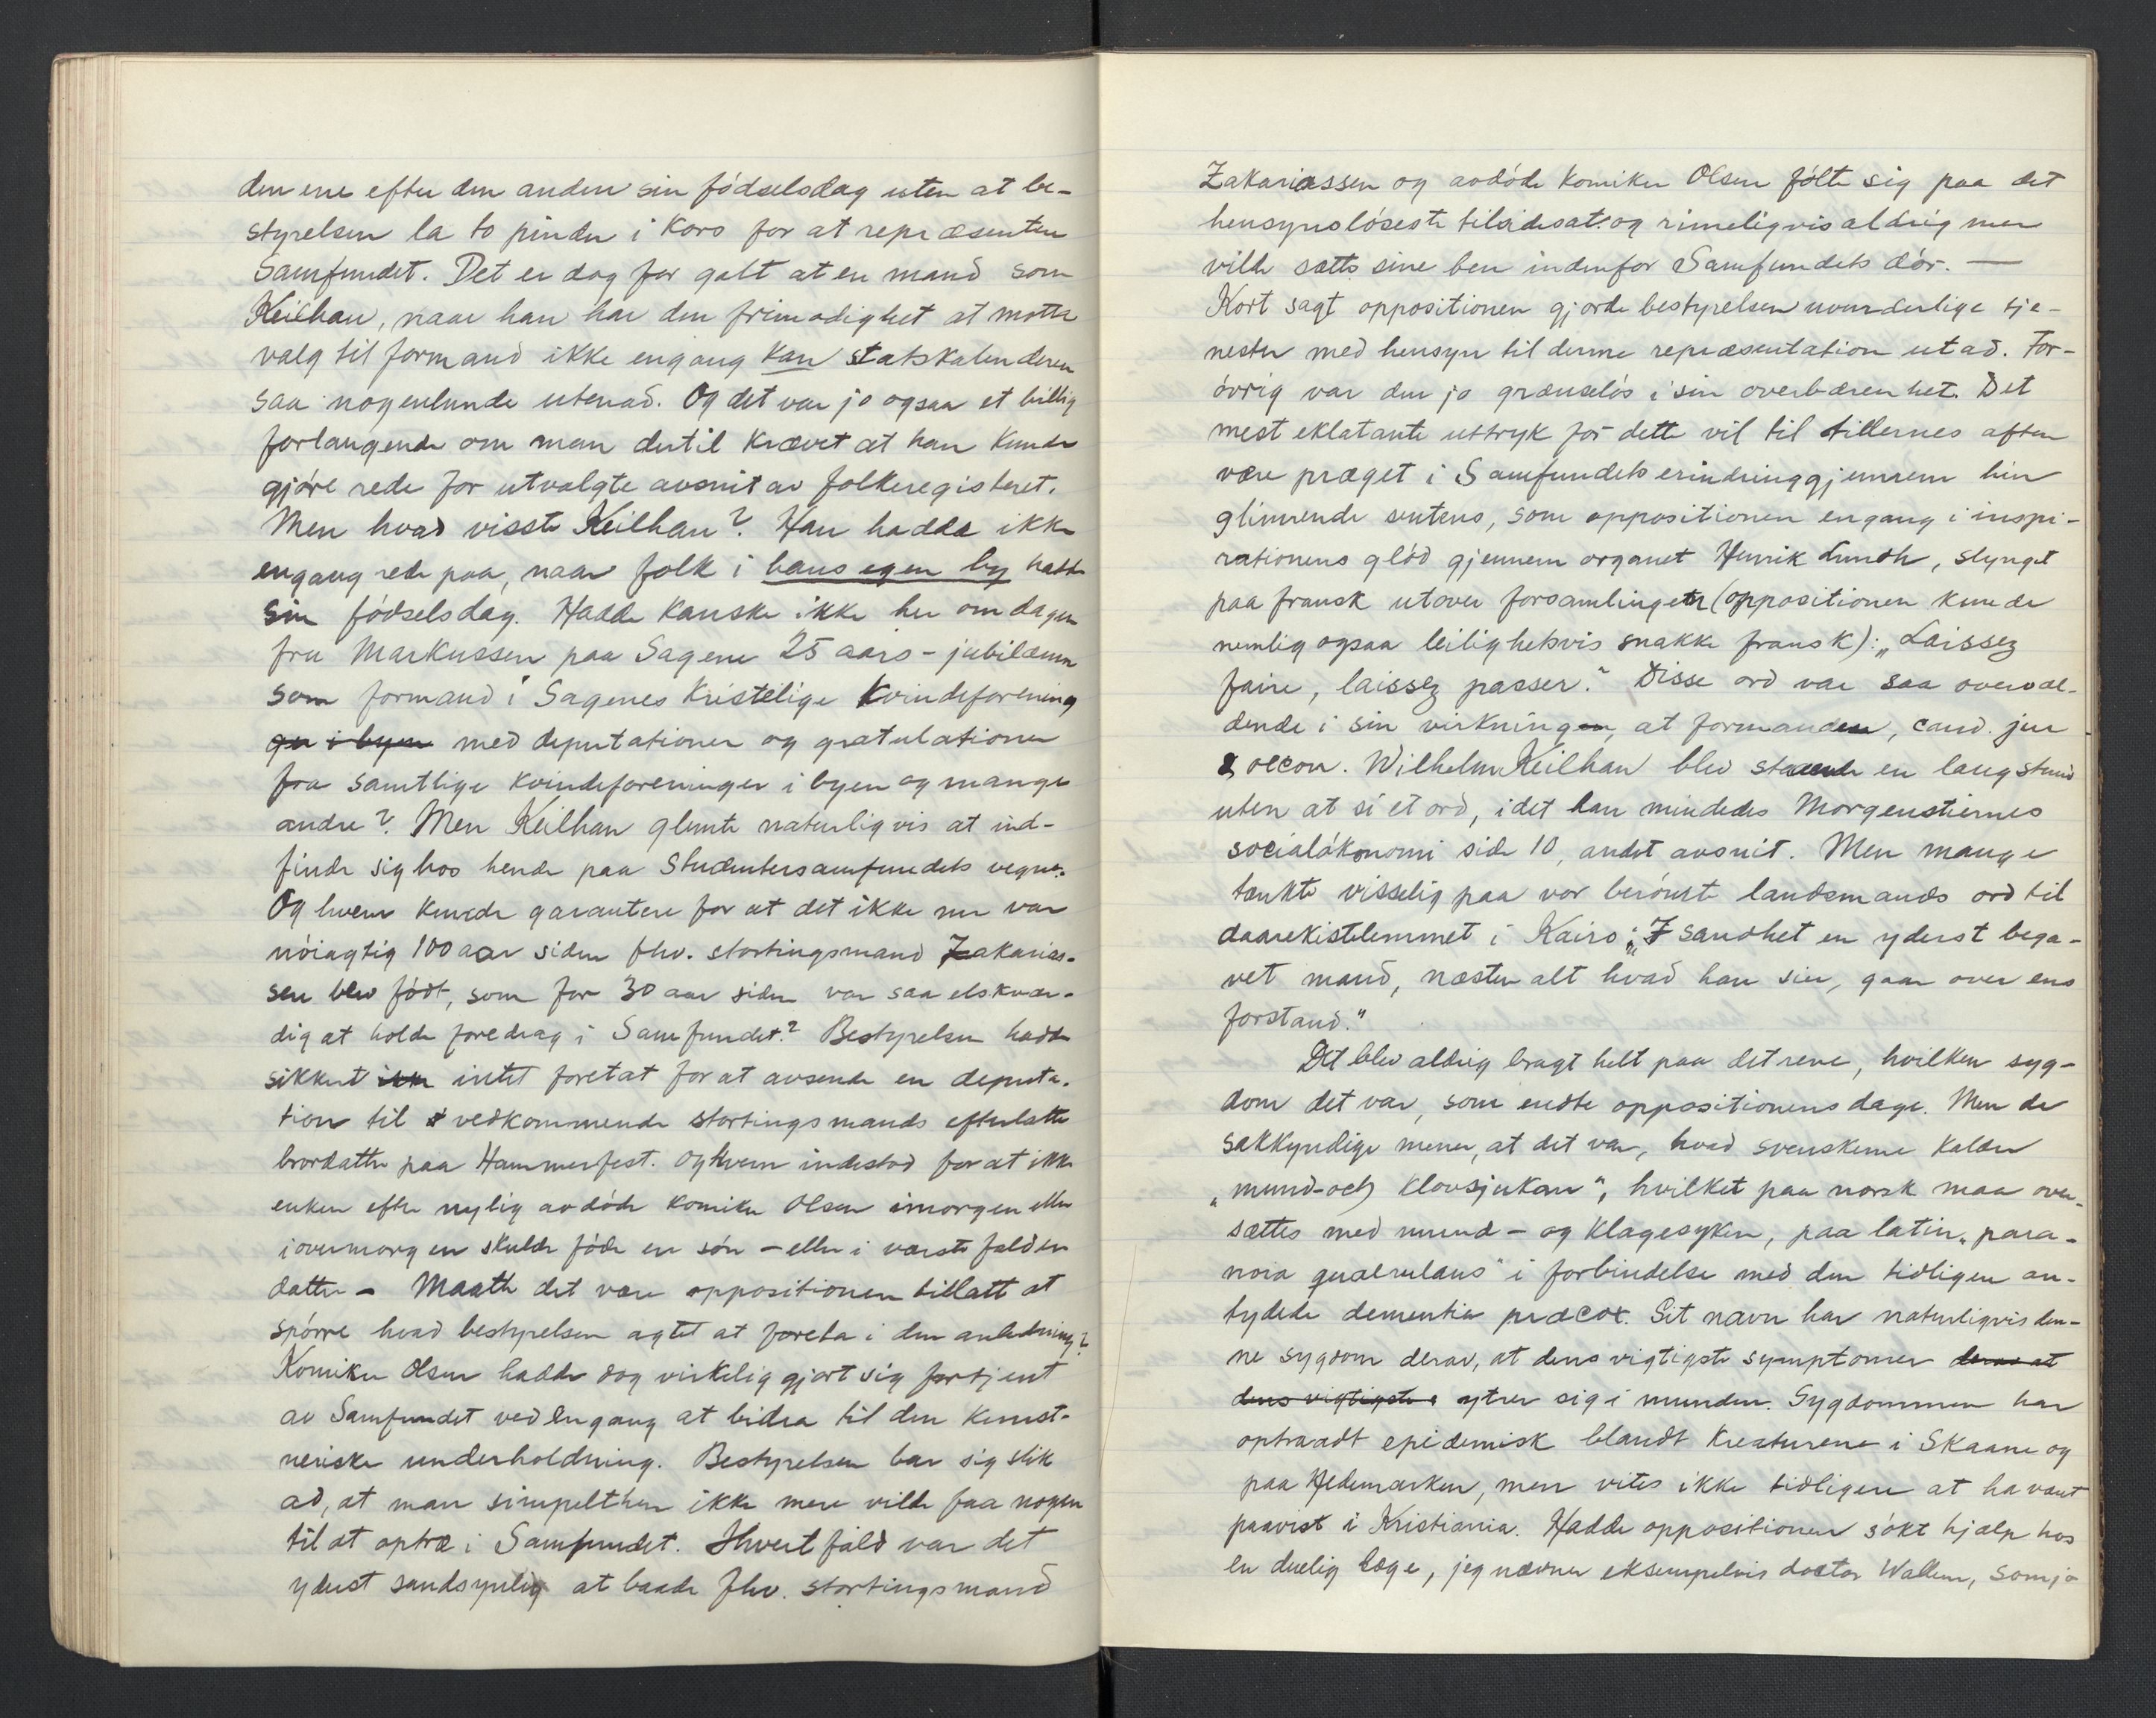 den ene efter den anden sin fødselsdag uten at be-
styrelsen la to pinder i kors for at repræsentere
Samfundet. Det er dog for galt at en mand som
Keilhau, naar han har den frimodighet at motta
valg til formand ikke engang kan statskalenderen
saa nogenlunde utenad. Og det var jo ogsaa et billig
forlangende om man dertil krævet at han kunde
gjøre rede for utvalgte avsnit av folkeregisteret.
Men hvad visste Keilhau? Han hadde ikke
engang rede paa, naar folk i hans egen by hadde
sin fødselsdag. Hadde kanske ikke her om dagen
fru Markussen paa Sagene 25 aars-jubilæum
som formand i Sagenes kristelige kvindeforening
gu i byen med deputationer og gratulationer
fra samtlige kvindeforeninger i byen og mange
andre? Men Keilhau glemte naturligvis at ind-
finde sig hos hende paa Studentersamfundets vegne.
Og hvem kunde garantere for at det ikke nu var
nøiagtig 100 aar siden fhv. stortingsmand Zakarias-
sen blev født, som for 30 aar siden var saa elskvær-
dig at holde foredrag i Samfundet? Bestyrelsen hadde
sikkert ikke intet foretat for at avsende en deputa-
tion til vedkommende stortingsmands efterlatte
brordatter paa Hammerfest. Og hvem indestod for at ikke
enken efter nylig avdøde komiker Olsen imorgen eller
iovermorgen skulde føde en søn – eller i værste fald en
datter – Maatte det være oppositionen tillatt at
spørre hvad bestyrelsen agtet at foreta i den anledning?
Komiker Olsen hadde dog virkelig gjort sig fortjent
av Samfundet ved engang at bidra til den kunst-
neriske underholdning. Bestyrelsen bar sig slik
ad, at man simpelthen ikke mere vilde faa nogen
til at optræ i Samfundet. Ihvertfald var det
yderst sandsynlig at baade fhv. stortingsmand
Zakariassen og avdøde komiker Olsen følte sig paa det
hensynsløseste tilsidesat og rimeligvis aldrig mer
vilde sætte sine ben indenfor Samfundets dør. —
Kort sagt oppositionen gjorde bestyrelsen uvurderlige tje-
nester med hensyn til denne repræsentation utad. For-
øvrig var den jo grænseløs i sin overbærenhet. Det
mest eklatante uttryk for dette vil til tidernes aften
være præget i Samfundets erindring gjennem hin
glimrende sentens, som oppositionen engang i inspi-
rationens glød gjennem organet Henrik Lundh, slynget
paa fransk utover forsamlingen (oppositionen kunde
nemlig ogsaa leilighetsvis snakke fransk): „Laissez
faire, laissez passer." Disse ord var saa overvæl-
dende i sin virkning, at formanden, cand. jur
& oecon. Wilhelm Keilhau blev staaende en lang stund
uten at si et ord, idet han mindedes Morgenstiernes
socialøkonomi side 10, andet avsnit. Men mange
tænkte visselig paa vor berømte landsmands ord til
daarekistelemmet i Kairo: „I sandhet en yderst bega-
vet mand, næsten alt hvad han sier, gaar over ens
forstand."
Det blev aldrig bragt helt paa det rene, hvilken syg-
dom det var, som endte oppositionens dage. Men de
sakkyndige mener, at det var, hvad svenskerne kalder
„mund-och klovsjukan", hvilket paa norsk maa over-
sættes med mund – og klagesyken, paa latin „para-
noia quærulans" i forbindelse med den tidligere an-
tydede dementia præcox. Sit navn har naturligvis den-
ne sygdom derav, at dens vigtigste symptomer derav at
dens vigtigste s ytrer sig i munden. Sygdommen har
optraadt epidemisk blandt kreaturene i Skaane og
paa Hedemarken, men vites ikke tidligere at ha vært
paavist i Kristiania. Hadde oppositionen søkt hjælp hos
en duelig læge, jeg nævner eksempelvis doctor Wallem, som jo